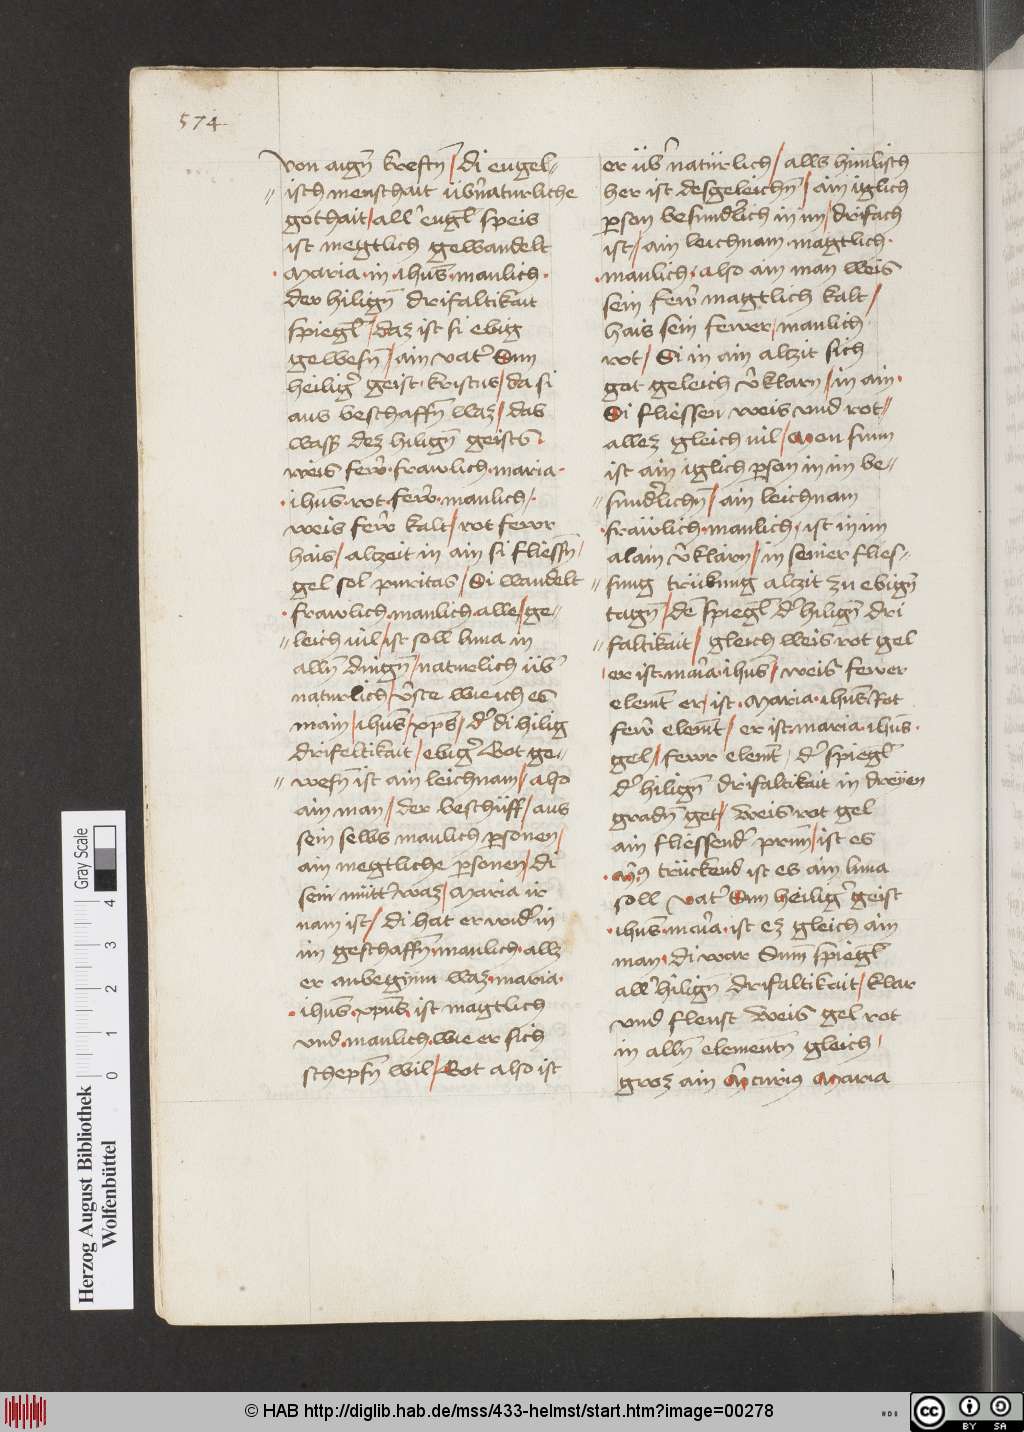 574
von aigñ kreftñ / di engel=
=isch menschait übñaturliche
gothait / all engl̃ speis
ist megtlich gewandelt
· Maria · in · ihus̃ · manlich ·
der hiligñ drifaltikait
spiegl̃ / daz ist si ebig
gewesñ / ain vat̾ Sun
heilig̾ geist · kristus / da si
aus beschaffñ waz / das
wass̾ dez hiligñ geists ·
weis few̾ · frawlich · maria ·
· ihus̃ · rot · few̾ · manlich / ·
weis few̾ kalt / rot fewr
hais / alzeit in ain si fliessñ /
gel sol puritas / Si wandelt
· frawlich · manlich alle / ge=
=leich vil / ist soll luna in
allñ dingñ / naturlich üb̾
naturlich / v̾ste wie ich es
main / ihus̃ / xp̃s / d̾ di hilig
drifeltikait / ebig̾ Got ge=
=wesñ ist ain leichnam / also
ain man / der beschüff / aus
sein selbs manlich p̲sonen /
ain megtliche p̲sonen / di
sein mutt̾ waz / Maria ir
nam ist / di hat er wid̾ in
im geschaffñ manlich · allz
er anbegynn waz · maria ·
· ihus̃ · xpus̃ ist magtlich
vnd · manlich · wie er sich
schepfñ wil / Got also ist
er üb̾ natürlich / alls himlisch
her ist desgeleichñ / ain iglich
p̲son besund̾lich in im / drifach
ist / ain leichnam · magtlich ·
· manlich · also ain man weis
sein few̾ magtlich kalt /
hais sein fewer / manlich
rot / Si in ain alzit sich
got geleich v̾klarn / in ain ·
Si fliessen weis vnd rot /
allez gleich vil / Men sun
ist ain iglich p̲son in im be=
=sund̾lichñ / ain leichnam
· frawlich · manlich · ist in im
alain v̾klarn / in seiner flies=
=sung trübung alzit zu ebigñ
tagñ / de spiegl̃ d̾ hiligñ dri
=faltikait / gleich weis rot gel
/ er ist · maria · ihus̃ / weis fewer
elemt̃ er / ist · Maria · ihus̃ Rot
few̾ elemt̃ / er ist · maria · ihus̃ ·
gel / fewr elemt̃ / d̾ spiegl̃
d̾ hiligñ drifaltikait in dreyen
gradñ get / Weis rot gel
ain fliessend̾ prun / ist es
trückend ist es ain luna
soll vat̾ Sun heilig̾ geist
· ihus̃ · maria · ist ez gleich ain
man · di war Sunn spiegl̃
all̾ hiligñ drifaltikait / klar
vnd fleust Weis gel rot
in allñ elementñ gleich /
groz ain M̾curiꝰ Maria
Gray Scale
4
3
2
1
0
Herzog August Bibliothek
Wolfenbüttel
© HAB http://diglib.hab.de/mss/433-helmst/start.htm?image=00278
cc BY SA